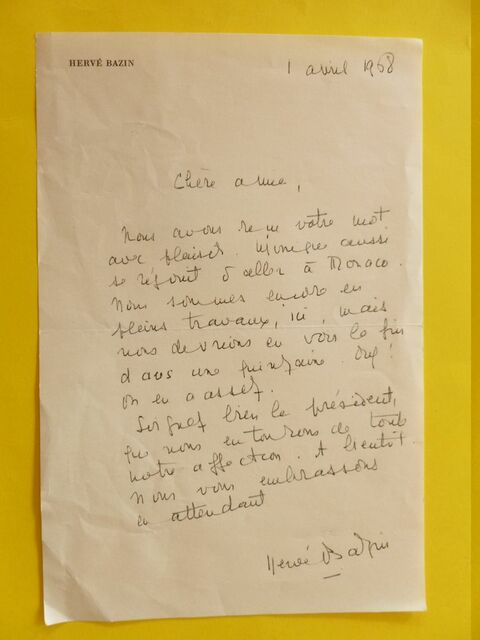 HERVÉ BAZIN
1 avril 1968
Chère amie,
Nous avons reçu votre mot
avec plaisir. Monique aussi
se réjouit d'aller à Monaco.
Nous sommes encore en
pleins travaux, ici, mais
nous devrions en voir la fin
dans une quinzaine. Ouf!
On en a assez.
Soignez bien le président,
que nous entourons de toute
notre affection. A bientôt.
Nous vous embrassons
en attendant
Hervé Bazin